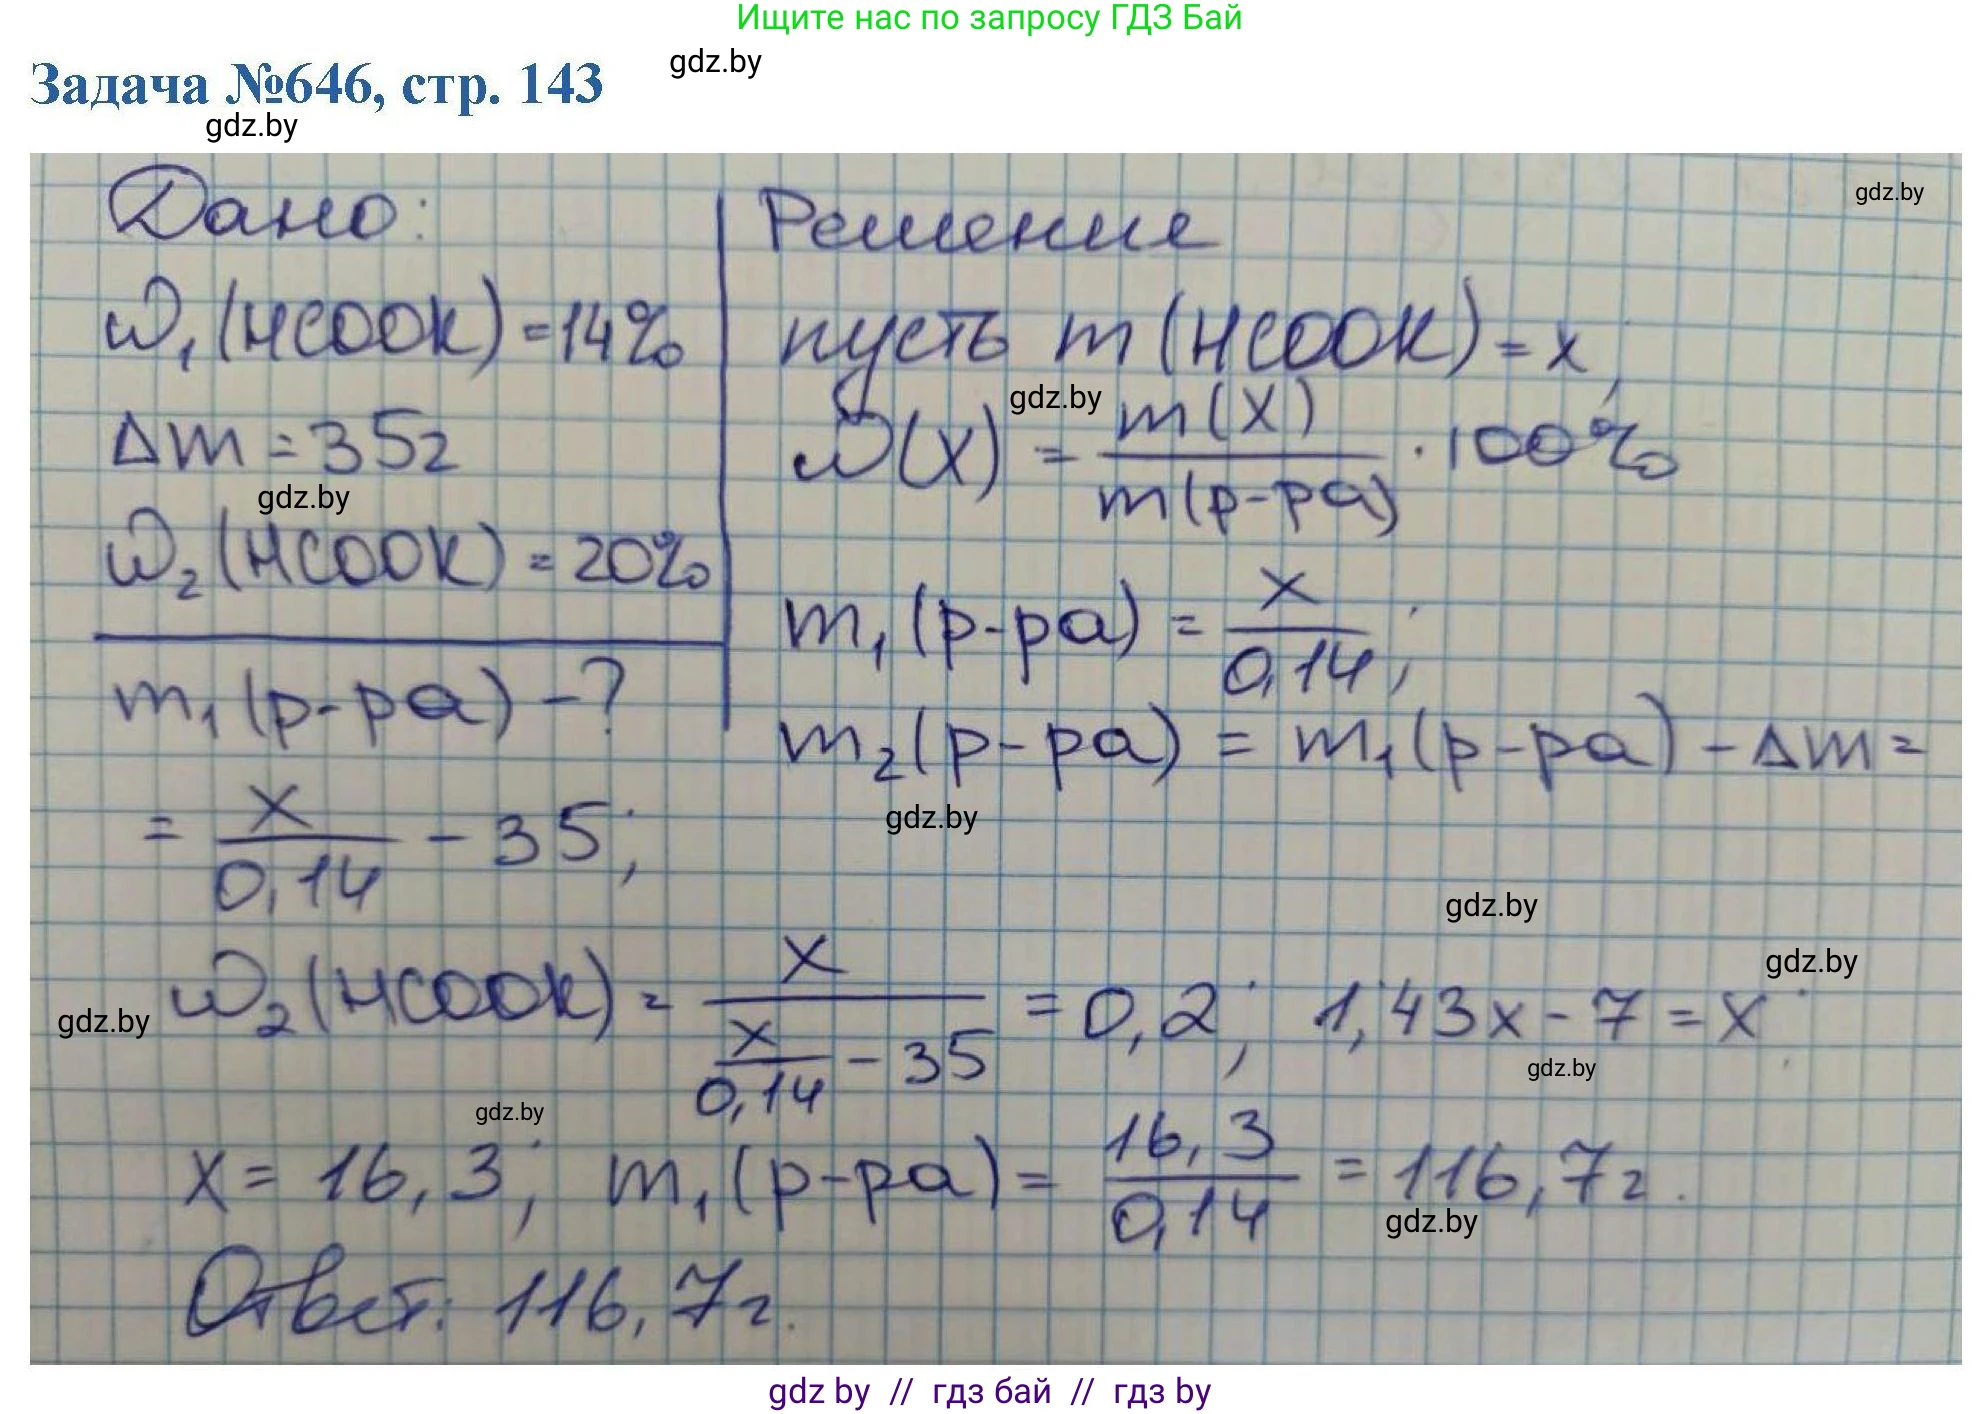 Ищите нас по запросу ГДЗ Бай
gdz.by
Задача №646, стр. 143
gdz.by
Дано:
Решение
gdz.by
ω₁(HCOOK) = 14%
пусть m(HCOOK) = x;
gdz.by
Δm = 35г
ω(X) = m(X) / m(р-ра) · 100%
gdz.by
ω₂(HCOOK) = 20%
m₁(р-ра) = x / 0,14;
m₁(р-ра) - ?
m₂(р-ра) = m₁(р-ра) - Δm =
gdz.by
= x / 0,14 - 35;
gdz.by
gdz.by
gdz.by
ω₂(HCOOK) = x / (x / 0,14 - 35) = 0,2; 1,43x - 7 = x;
gdz.by
gdz.by
x = 16,3; m₁(р-ра) = 16,3 / 0,14 = 116,7г.
gdz.by
Ответ: 116,7г.
gdz by // гдз бай // гдз by